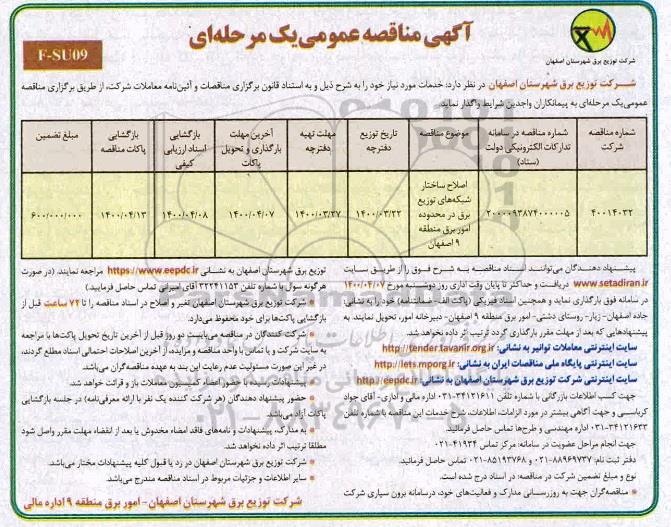 آگهی مناقصه عمومی یک مرحله‌ای
F-SU09
شرکت توزیع برق شهرستان اصفهان
شرکت توزیع برق شهرستان اصفهان در نظر دارد: خدمات مورد نیاز خود را به شرح ذیل و به استناد قانون برگزاری مناقصات و آئین‌نامه معاملات شرکت، از طریق برگزاری مناقصه
عمومی یک مرحله‌ای به پیمانکاران واجدین شرایط واگذار نماید.
شماره مناقصه شرکت
شماره مناقصه در سامانه تدارکات الکترونیکی دولت (ستاد)
موضوع مناقصه
تاریخ توزیع دفترچه
مهلت تهیه دفترچه
آخرین مهلت بارگذاری و تحویل پاکات
بازگشایی اسناد ارزیابی کیفی
بازگشایی پاکات مناقصه
مبلغ تضمین
۴۰۰۱۴۰۳۲
۲۰۰۰۰۹۳۸۷۴۰۰۰۰۰۵
اصلاح ساختار شبکه‌های توزیع برق در محدوده امور برق منطقه ۹ اصفهان
۱۴۰۰/۰۳/۲۲
۱۴۰۰/۰۳/۲۷
۱۴۰۰/۰۴/۰۷
۱۴۰۰/۰۴/۰۸
۱۴۰۰/۰۴/۱۳
۶۰۰/۰۰۰/۰۰۰
پیشنهاد دهندگان می‌توانند اسناد مناقصه به شرح فوق را از طریق سایت
www.setadiran.ir دریافت و حداکثر تا پایان وقت اداری روز دوشنبه مورخ ۱۴۰۰/۰۴/۰۷
در سامانه فوق بارگذاری نماید و همچنین اسناد فیزیکی (پاکت الف - ضمانتنامه) خود را به نشانی
جاده اصفهان- زیار- روستای دشتی- امور برق منطقه ۹ اصفهان- دبیرخانه امور، تحویل نمایند. به
پیشنهادهایی که بعد از مهلت مقرر بارگذاری گردد ترتیب اثر داده نخواهد شد.
سایت اینترنتی معاملات توانیر به نشانی: http://tender.tavanir.org.ir
سایت اینترنتی پایگاه ملی مناقصات ایران به نشانی: http://iets.mporg.ir
سایت اینترنتی شرکت توزیع برق شهرستان اصفهان به نشانی: http://eepdc.ir
جهت کسب اطلاعات بازرگانی با شماره تلفن ۳۴۱۲۱۶۱۱-۰۳۱ اداره مالی و اداری- آقای جواد
کرباسی و جهت آگاهی بیشتر در مورد الزامات، اطلاعات، شرح خدمات این مناقصه با شماره تلفن
۳۴۱۲۱۶۳۳-۰۳۱ اداره مهندسی و طرح‌ها تماس حاصل فرمائید.
جهت انجام مراحل عضویت در سامانه: مرکز تماس ۴۱۹۳۴-۰۲۱
دفتر ثبت نام: ۸۸۹۶۹۷۳۷-۰۲۱ و ۸۵۱۹۳۷۶۸-۰۲۱ تماس حاصل فرمائید.
نوع و مبلغ تضمین شرکت در مناقصه: در اسناد درج شده است.
• مناقصه‌گران جهت به روزرسانی مدارک و فعالیت‌های خود، درسامانه برون سپاری شرکت
توزیع برق شهرستان اصفهان به نشانی https://www.eepdc.ir مراجعه نمایند. (در صورت
هرگونه سوال با شماره تلفن ۳۲۲۴۱۱۵۳ آقای امیرانی تماس حاصل فرمایید.)
• شرکت توزیع برق شهرستان اصفهان تغییر و اصلاح در اسناد مناقصه را تا ۷۲ ساعت قبل از
بازگشایی پاکت‌ها برای خود محفوظ می‌دارد.
• شرکت کنندگان در مناقصه می‌بایست دو روز قبل از آخرین تاریخ تحویل پاکت‌ها با مراجعه
به سایت شرکت و یا تماس با واحد مناقصه و مزایده، از آخرین اصلاحات احتمالی اسناد مطلع گردند،
در غیر این صورت مسئولیت عدم رعایت این بند به عهده مناقصه‌گران می‌باشد.
• پیشنهادات رسیده در حضور اعضاء کمیسیون معاملات باز و قرائت خواهد شد.
• حضور پیشنهاد دهندگان (هر شرکت کننده یک نفر با ارائه معرفی‌نامه) در جلسه بازگشایی
پاکات آزاد می‌باشد.
• به مدارک، پیشنهادات و نامه‌های فاقد امضاء مخدوش یا بعد از انقضاء مهلت مقرر واصل شود
مطلقا ترتیب اثر داده نخواهد شد.
• شرکت توزیع برق شهرستان اصفهان در رد یا قبول کلیه پیشنهادات مختار می‌باشد.
• سایر اطلاعات و جزئیات مربوط در اسناد مناقصه مندرج می‌باشد.
شرکت توزیع برق شهرستان اصفهان- امور برق منطقه ۹ اداره مالی